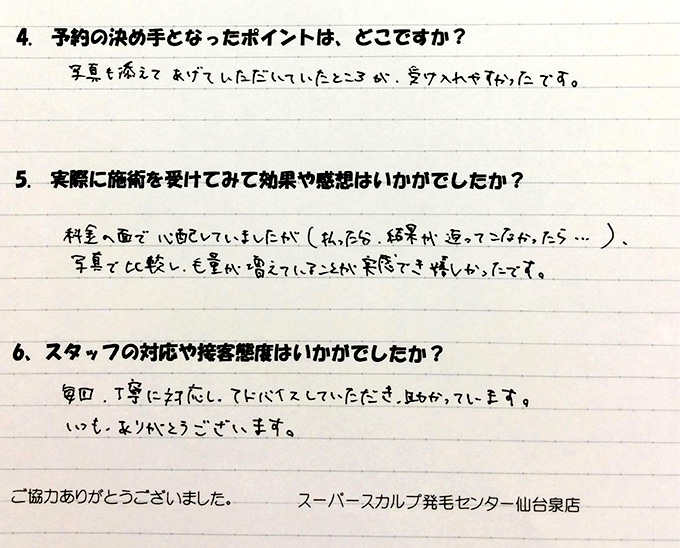 4. 予約の決め手となったポイントは、どこですか？
写真も添えてあげていただいていたところが、受け入れやすかったです。
5. 実際に施術を受けてみて効果や感想はいかがでしたか？
料金の面で心配していましたが（払った分、結果が返ってこなかったら…）、
写真で比較し、毛量が増えていることが実感でき嬉しかったです。
6、スタッフの対応や接客態度はいかがでしたか？
毎回、丁寧に対応し、アドバイスしていただき、助かっています。
いつも、ありがとうございます。
ご協力ありがとうございました。 スーパースカルプ発毛センター仙台泉店